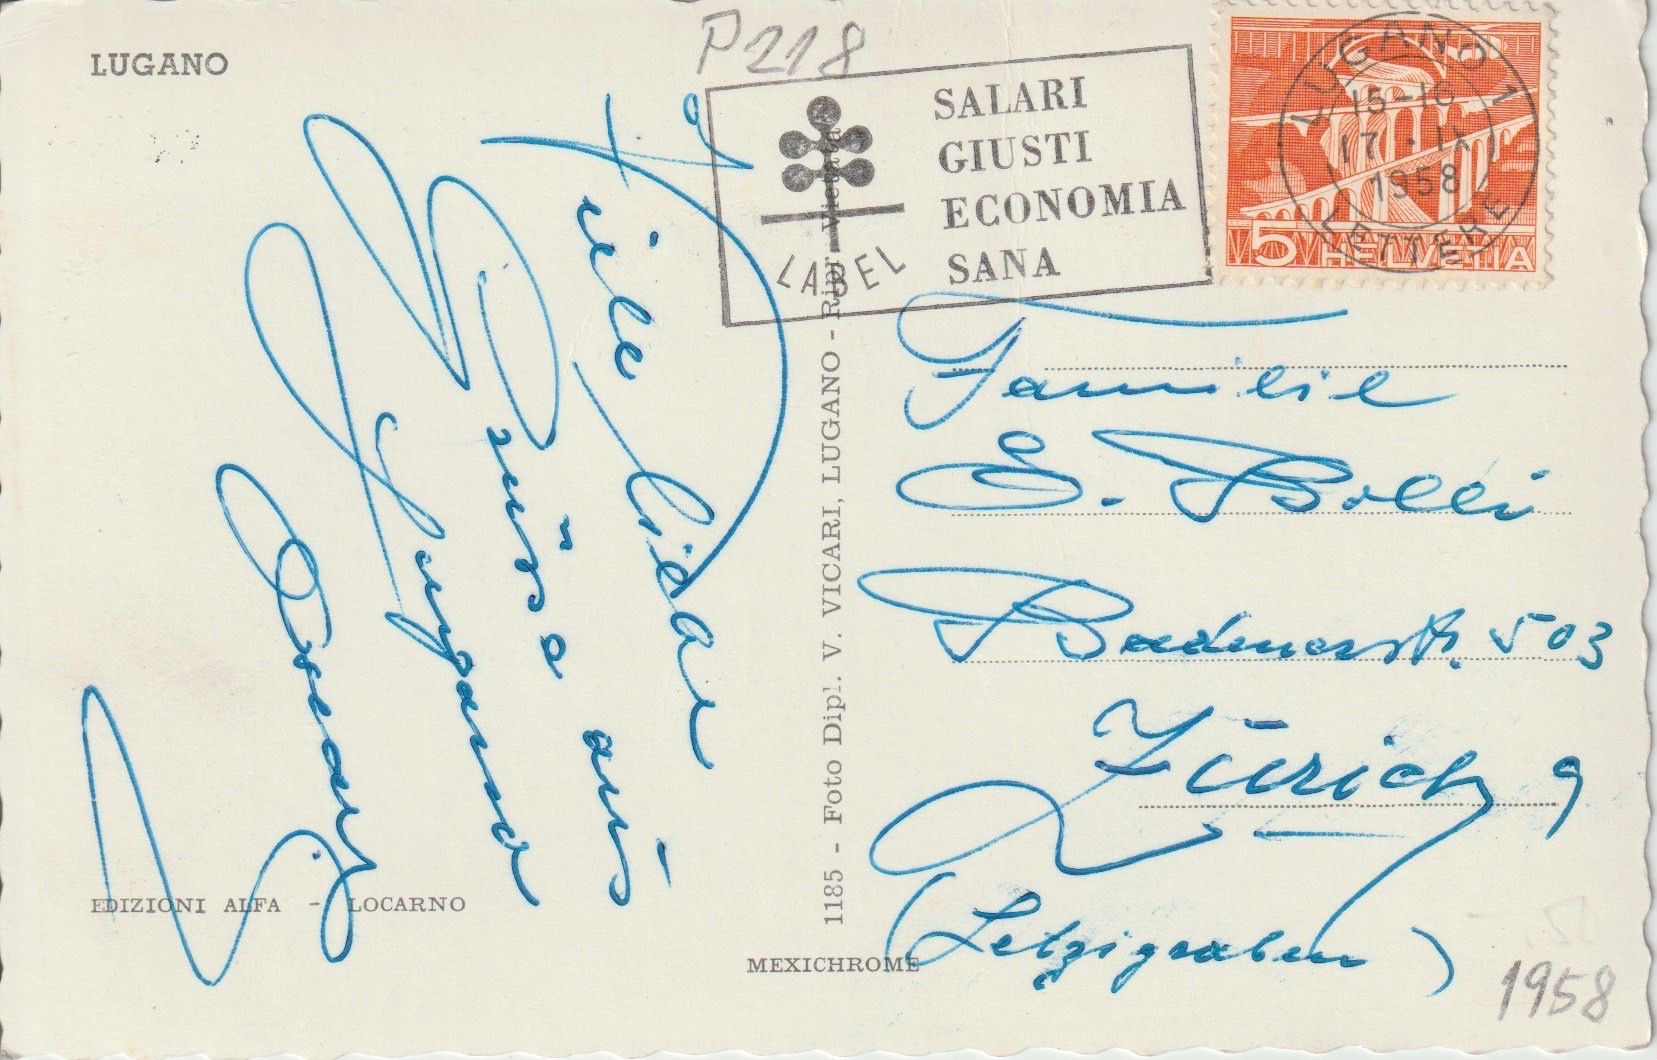 LUGANO
P218
SALARI
GIUSTI
ECONOMIA
SANA
LABEL
LUGANO 1
15-16
17.IX
1958
LETTERE
5 HELVETIA
Viele liebe
Grüsse aus
Lugano
Familie
E. Bolli
Badenerstr. 503
Zürich 9
(Letzigraben)
1185 - Foto Dipl. V. VICARI, LUGANO - Ripr. Vietata
EDIZIONI ALFA - LOCARNO
MEXICHROME
1958